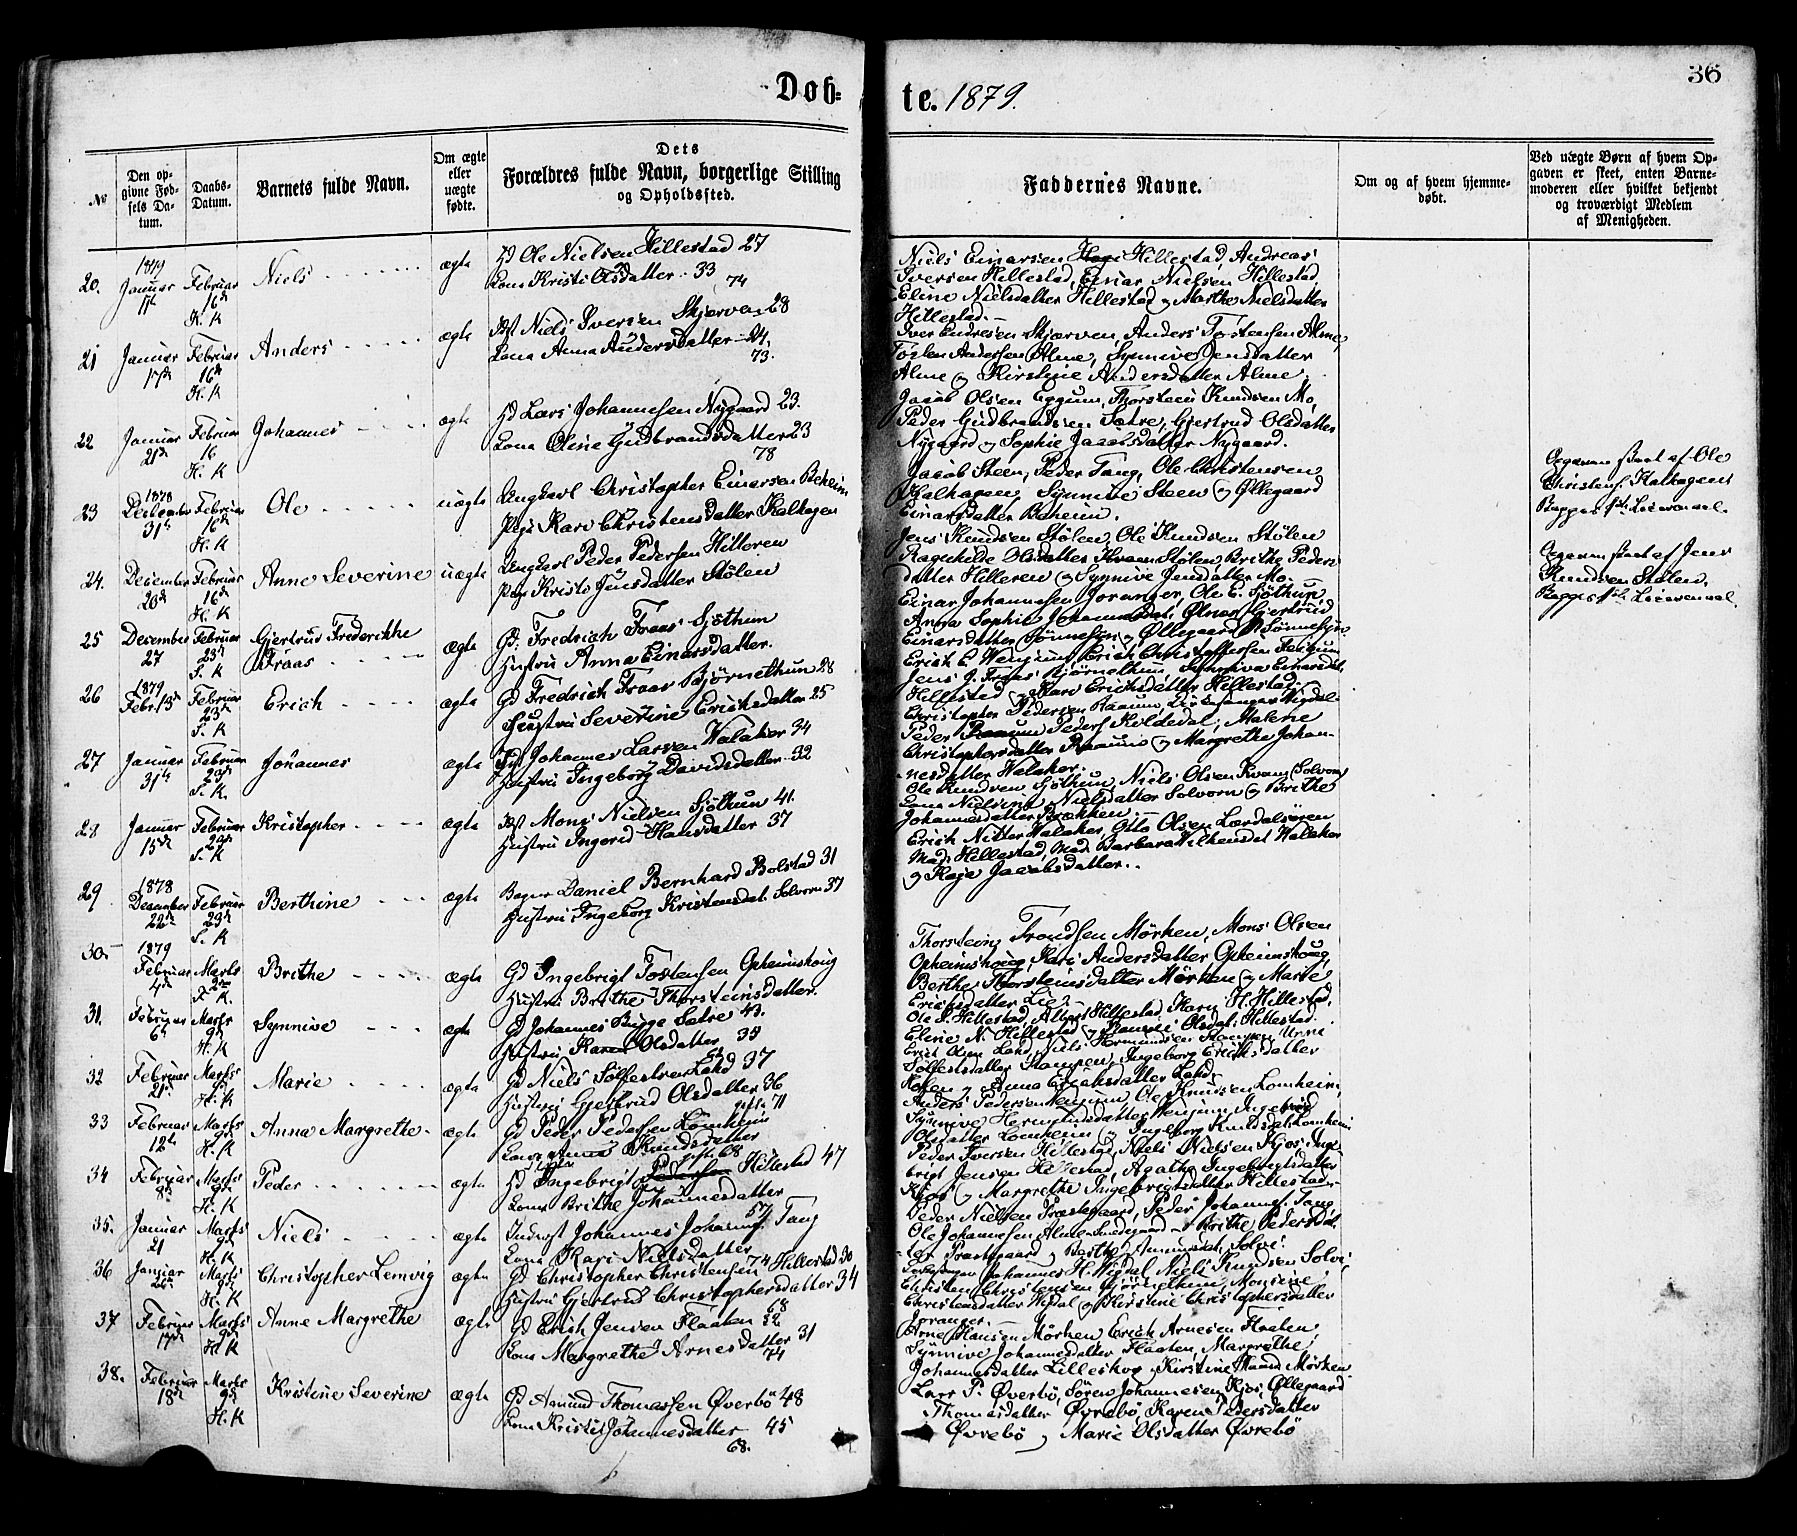 Døb=
te. 1879.
36
No
Den op-
givne Fød-
sels Da-
tum.
Daabs-
Datum.
Barnets fulde Navn.
Om ægte
eller
uægte
fødte.
Dets
Forældres fulde Navn, borgerlige Stilling
og Opholdssted.
Faddernes Navne.
Om og af hvem hjemme-
døbt.
Ved uægte Børn af hvem Op-
gaven er skeet, enten Barne-
moderen eller hvilket bekjendt
og troværdigt Medlem
af Menigheden.
20. 1879 Januar Februar 16de H. K Niels ægte
Ole Nielsen Hillestad 27
Kona Kristi Olsdatter 33
74
Niels Einarsen Hillestad, Andreas
Iversen Hillestad, Einar Nielsen Hillestad,
Eline Nielsdatter Hillestad og Marthe Nielsdatter
Hillestad.
21 Januar 17de Februar 16de H. K Anders ægte
Niels Iversen Skjerven 28
Kona Anna Andersdatter 24
73.
Iver Endresen Skjerven, Anders Tostensen Alme,
Tosten Andersen Alme, Synnive Jensdatter
Alme og Kirstine Andersdatter Alme.
22 Januar 21de Februar 16 H. K Johannes ægte
Lars Johannesen Nygaard 23.
Kona Oline Gudbrandsdatter 23
78
Jacob Olsen Eggum, Thorstein Knudsen Mo,
Peder Gudbrandsen Sætre, Gjertrud Olsdatter
Nygaard og Sophie Jacobsdatter Nygaard.
23 1878 December 31te Februar 16de H. K Ole uægte
Ungkarl Christopher Einarsen Beheim
Pige Kari Christensdatter Kalhagen
Jacob Steen, Peder Tang, Ole Christensen
Kalhagen, Synnive Steen og Øllegaard
Einarsdatter Beheim.
Opgaven skeet af Ole
Christens. Kalhagen
24. December 20de Februar 16de H. K Anne Severine uægte
Ungkarl Peder Pedersen Hilleren
Pige Kristi Jensdatter Stølen
Jens Knudsen Stølen, Ole Knudsen Stølen
Ragnhilde Olsdatter Stølen, Brithe Peders
datter Hilleren og Synnive Jensdatter Mo.
Opgaven skeet af Jens
Knudsen Stølen.
25 December 27 Februar 23de S. K Gjertrud Frederikke
Fraas ægte
Gd: Fredrich Fraas Sjøthun
Hustru Anna Einarsdatter.
Einar Johannesen Joranger, Ole E. Sjøthun,
Anna Sophie
Einarsdatter Sønnesyn og Øllegaard Sønnesyn.
26 1879 Febr. 13de Februar 23de S. K Erich ægte
Gd Fredrich Fraas Bjørnethun 28
Hustru Severine Erichsdatter 25
Erich E. Venjum, Erich Christoffersen
Jens J. Fraas Bjørnethun, Synneva Einarsdat.
Hillestad og Kari Erichsdatter Hillestad.
27 Januar 31te Februar 23de S. K. Johannes ægte
Johannes Larsen Walaker 34
Hustru Ingeborg Davidsdatter 32
Christopher Pedersen Raaum, Kirkesanger Vigdal
Peder Peders. Kvildedal, Malene
Christophersdatter Raaum og Margrethe Johan-
nesdatter Walaker.
28 Januar 15de Februar 23de S. K Kristopher ægte
Mons Nielsen Sjøthun 41.
Hustru Ingerid Hansdatter 37
Ole Knudsen Sjøthun, Niels Olsen Kvam Solvorn
Kona Nielsine Nielsdatter Solvorn og Brithe
Johannesdatter Brækken.
29 1878 December 22de Februar 23de S. K Berthine ægte
Bager Daniel Bernhard Bolstad 31
Hustru Ingeborg Kristensdat. Solvorn 37
Erich Nitter Walaker, Otto Olsen Lærdalsøren
Mad. Hillestad, Mad. Barbara Vilhemsdat. Walaker
og Kaje Jacobsdatter.
30 1879 Februar 4de Marts 2den F. K. Brithe ægte
Gd Ingebrigt Tostensen Opheimskoug
Hustru Brithe Thorsteinsdatter.
Thorstein Trondsen Mørken, Mons Olsen
Opheimskoug, Kari Andersdatter Opheimskoug,
Berthe Thorsteinsdatter Mørken og Marie
Erichsdatter Lie.
31. Februar 6te Marts 9de H. K Synnive ægte
Gd Johannes Bugge Sætre 43.
Hustru Karen Olsdatter 35
Ole S. Hillestad, Albert Hillestad, Karn H. Hillestad,
Eline N. Hillestad og Olsdat. Hillestad.
32 Februar 21de Marts 9de H. K Marie ægte
Gd Niels Sølfestsen Lahd 37
Hustru Gjertrud Olsdatter 36
Erich Olsen Lahd, Niels Hermundsen Urni
Sølfestsdatter, Ingeborg Erichsdatter
og Anna Erichsdatter Lahd.
33 Februar 12te Marts 9de H. K Anna Margrethe ægte
Gd Peder Pedersen Lomheim
Kona Anna Knudsdatter
gift 71
Anders Pedersen Venjum, Ole Knudsen Lomheim,
Synneve Hermundsdatter Venjum, Ingebrid
Olsdatter Lomheim og Ingeborg Knudsdat. Lomheim
34 Februar 8de Marts 9de H. K Peder ægte
Ingebrigt Hillestad 47
Kona Brithe Johannesdatter
gift 68
Peder Iversen Hillestad, Niels Nielsen Kjos, Inge-
brigt Jensen Hillestad, Agathe Ingebrigtsdatter
Kjos og Margrethe Ingebrigtsdatter Hillestad.
35. Januar 21 Marts 9de H. K Niels ægte
Inderst Johannes Johannes. Tang
Kona Kari Nielsdatter
74
Peder Nielsen Præstegaard, Peder Johannes. Tang
Ole Johannesen Alme og Brithe Pedersdat.
Præstegaard og Berthe Amundsdat. Solvi.
36 Januar 26de Marts 9de H. K Christopher Lemvig ægte
Gd Christopher Christensen Hillestad 30
Hustru Gjertrud Christophersdatter 34
68
Kirkesanger Johannes H. Vigdal, Niels Knudsen Solvi,
Christen Christensen Bjørnethun, Monsine
Christensdatter Vigdal og Kirstine Christophersdatter
Joranger.
37 Februar 17de Marts 9de H. K Anne Margrethe ægte
Gd Erich Jensen Flaaten 32
Kona Margrethe Arnesdatter 31
74
Arne Hansen Mørken, Erich Arnesen Flaaten,
Synnive Johannesdatter Flaaten, Margrethe
Johannesdatter Lilleskog, Kirstine Haard Mørken
38. Februar 18de Marts 9de H. K Kristine Severine ægte
Gd Amund Thomassen Øverbö 48
Kona Kristi Johannesdatter 45
68.
Lars P. Øverbö, Sören Johannesen Kjos, Øllegaard
Thomasdatter Øvrebö, Karen Pedersdatter
Øvrebö og Marie Olsdatter Øvrebö